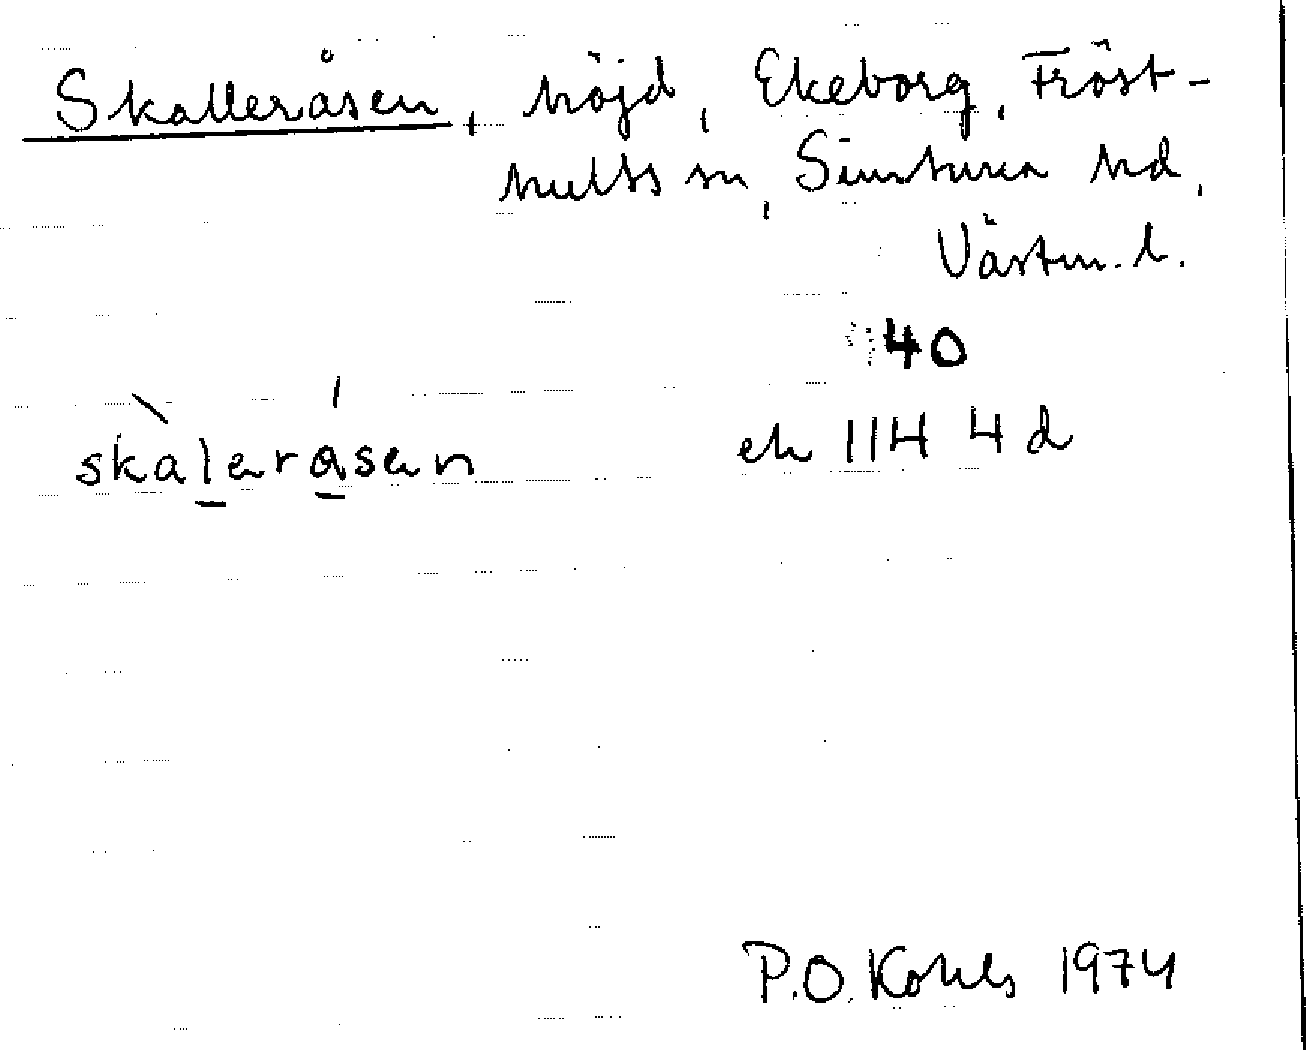 Skalleråsen, höjd, Ekeborg, Fröst-
hults sn, Simtuna hd,
Västm. l.
40
skàl̲erá̲sen
ek 114 4 d
P.O. Kohls 1974